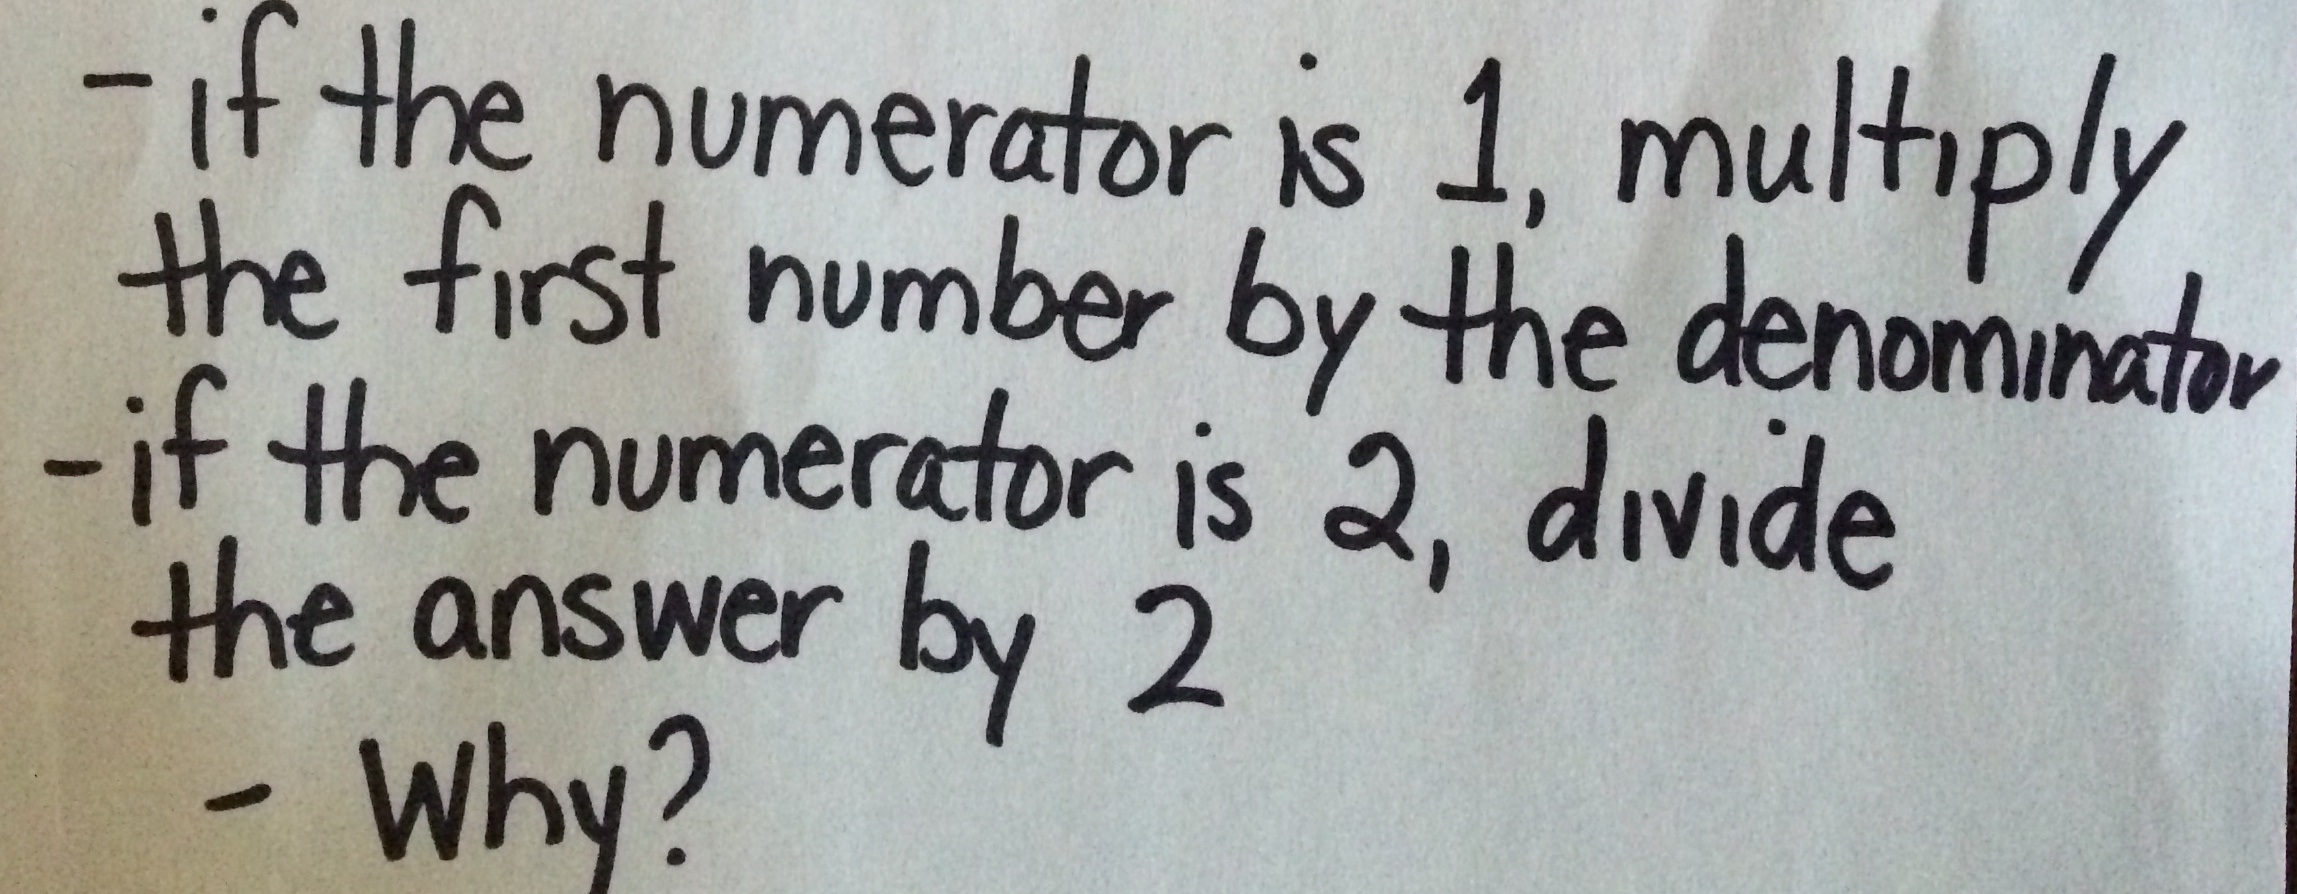 - if the numerator is 1, multiply
the first number by the denominator
- if the numerator is 2, divide
the answer by 2
- Why?